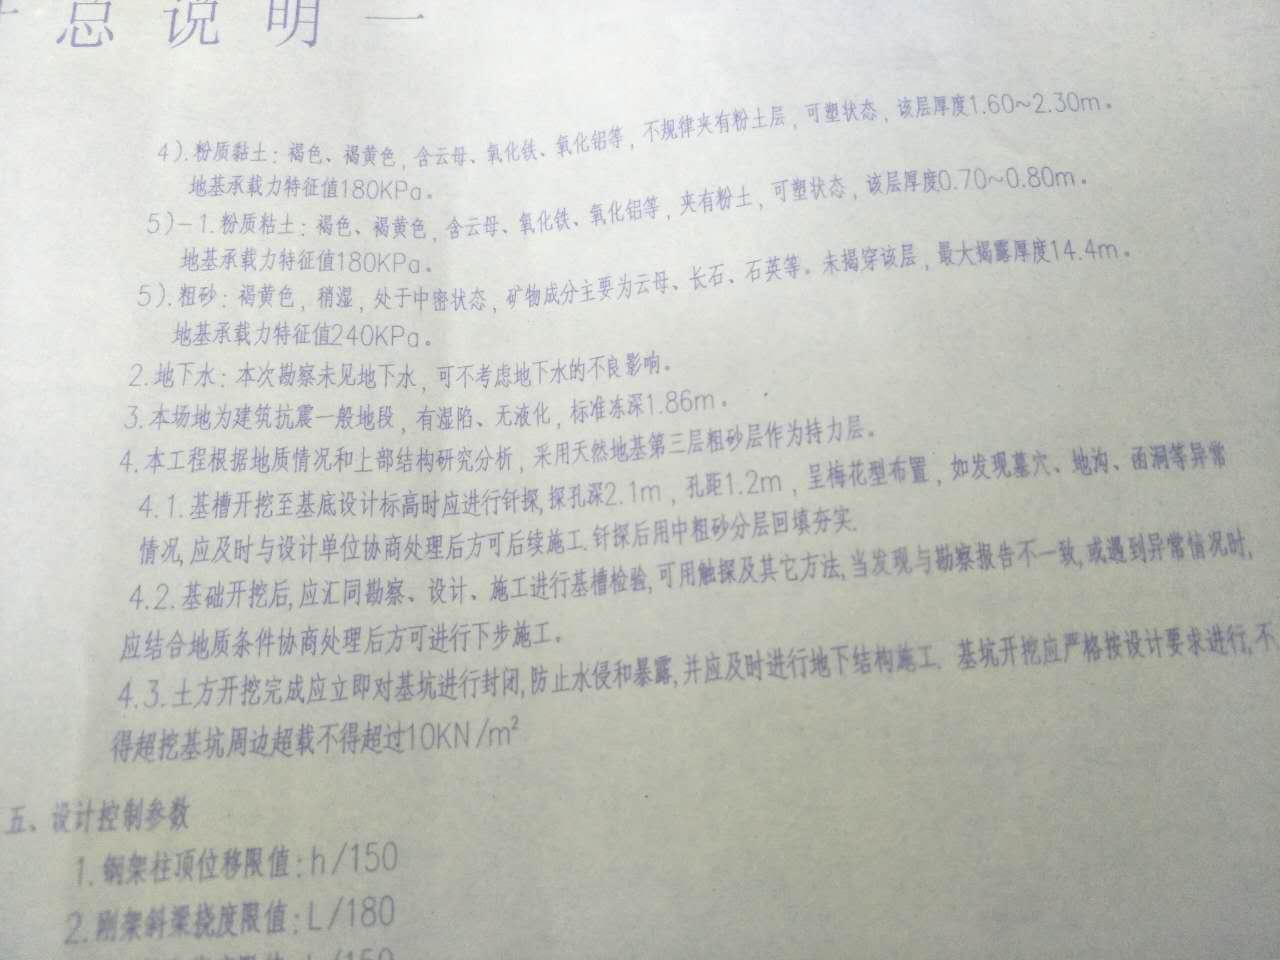 总说明一
4).粉质黏土：褐色、褐黄色，含云母、氧化铁、氧化铝等，不规律夹有粉土层，可塑状态，该层厚度1.60~2.30m。
地基承载力特征值180KPa。
5)-1.粉质粘土：褐色、褐黄色，含云母、氧化铁、氧化铝等，夹有粉土，可塑状态，该层厚度0.70~0.80m。
地基承载力特征值180KPa。
5).粗砂：褐黄色，稍湿，处于中密状态，矿物成分主要为云母、长石、石英等。未揭穿该层，最大揭露厚度14.4m。
地基承载力特征值240KPa。
2.地下水：本次勘察未见地下水，可不考虑地下水的不良影响。
3.本场地为建筑抗震一般地段，有湿陷、无液化，标准冻深1.86m。
4.本工程根据地质情况和上部结构研究分析，采用天然地基第三层粗砂层作为持力层。
4.1.基槽开挖至基底设计标高时应进行钎探,探孔深2.1m，孔距1.2m，呈梅花型布置，如发现墓穴、地沟、函洞等异常
情况,应及时与设计单位协商处理后方可后续施工.钎探后用中粗砂分层回填夯实.
4.2.基础开挖后,应汇同勘察、设计、施工进行基槽检验,可用触探及其它方法,当发现与勘察报告不一致,或遇到异常情况时,
应结合地质条件协商处理后方可进行下步施工。
4.3.土方开挖完成应立即对基坑进行封闭,防止水侵和暴露,并应及时进行地下结构施工. 基坑开挖应严格按设计要求进行,不
得超挖基坑周边超载不得超过10KN/m²
五、设计控制参数
1.钢架柱顶位移限值:h/150
2.刚架斜梁挠度限值:L/180